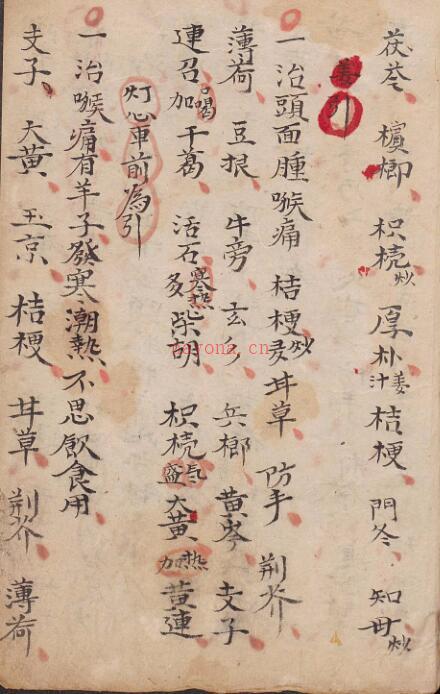 茯苓 檳榔 枳梡炒 厚朴姜汁 桔梗 門冬 知毋炒
姜引
一治頭面腫喉痛 桔梗炒 甘草 防 荆芥
薄荷 豆根 牛旁 玄乡 兵榔 黄岑 支子
連召 口喝加干葛 活石 寒热多柴胡 枳梡 气盛大黄 热加黄連
灯心車前為引
一治喉痛有羊子發寒潮熱不思飲食用
支子 大黄 玉京 桔梗 甘草 荆芥 薄荷